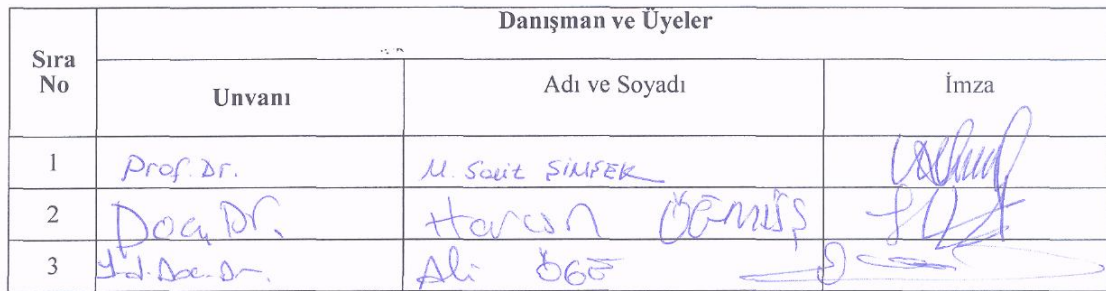 Danışman ve Üyeler
Sıra No Unvanı Adı ve Soyadı İmza
1 Prof. Dr. M. Sait ŞİMŞEK
2 Doç. Dr. Harun ÖĞMÜŞ
3 Yrd. Doç. Dr. Ali ÖGE